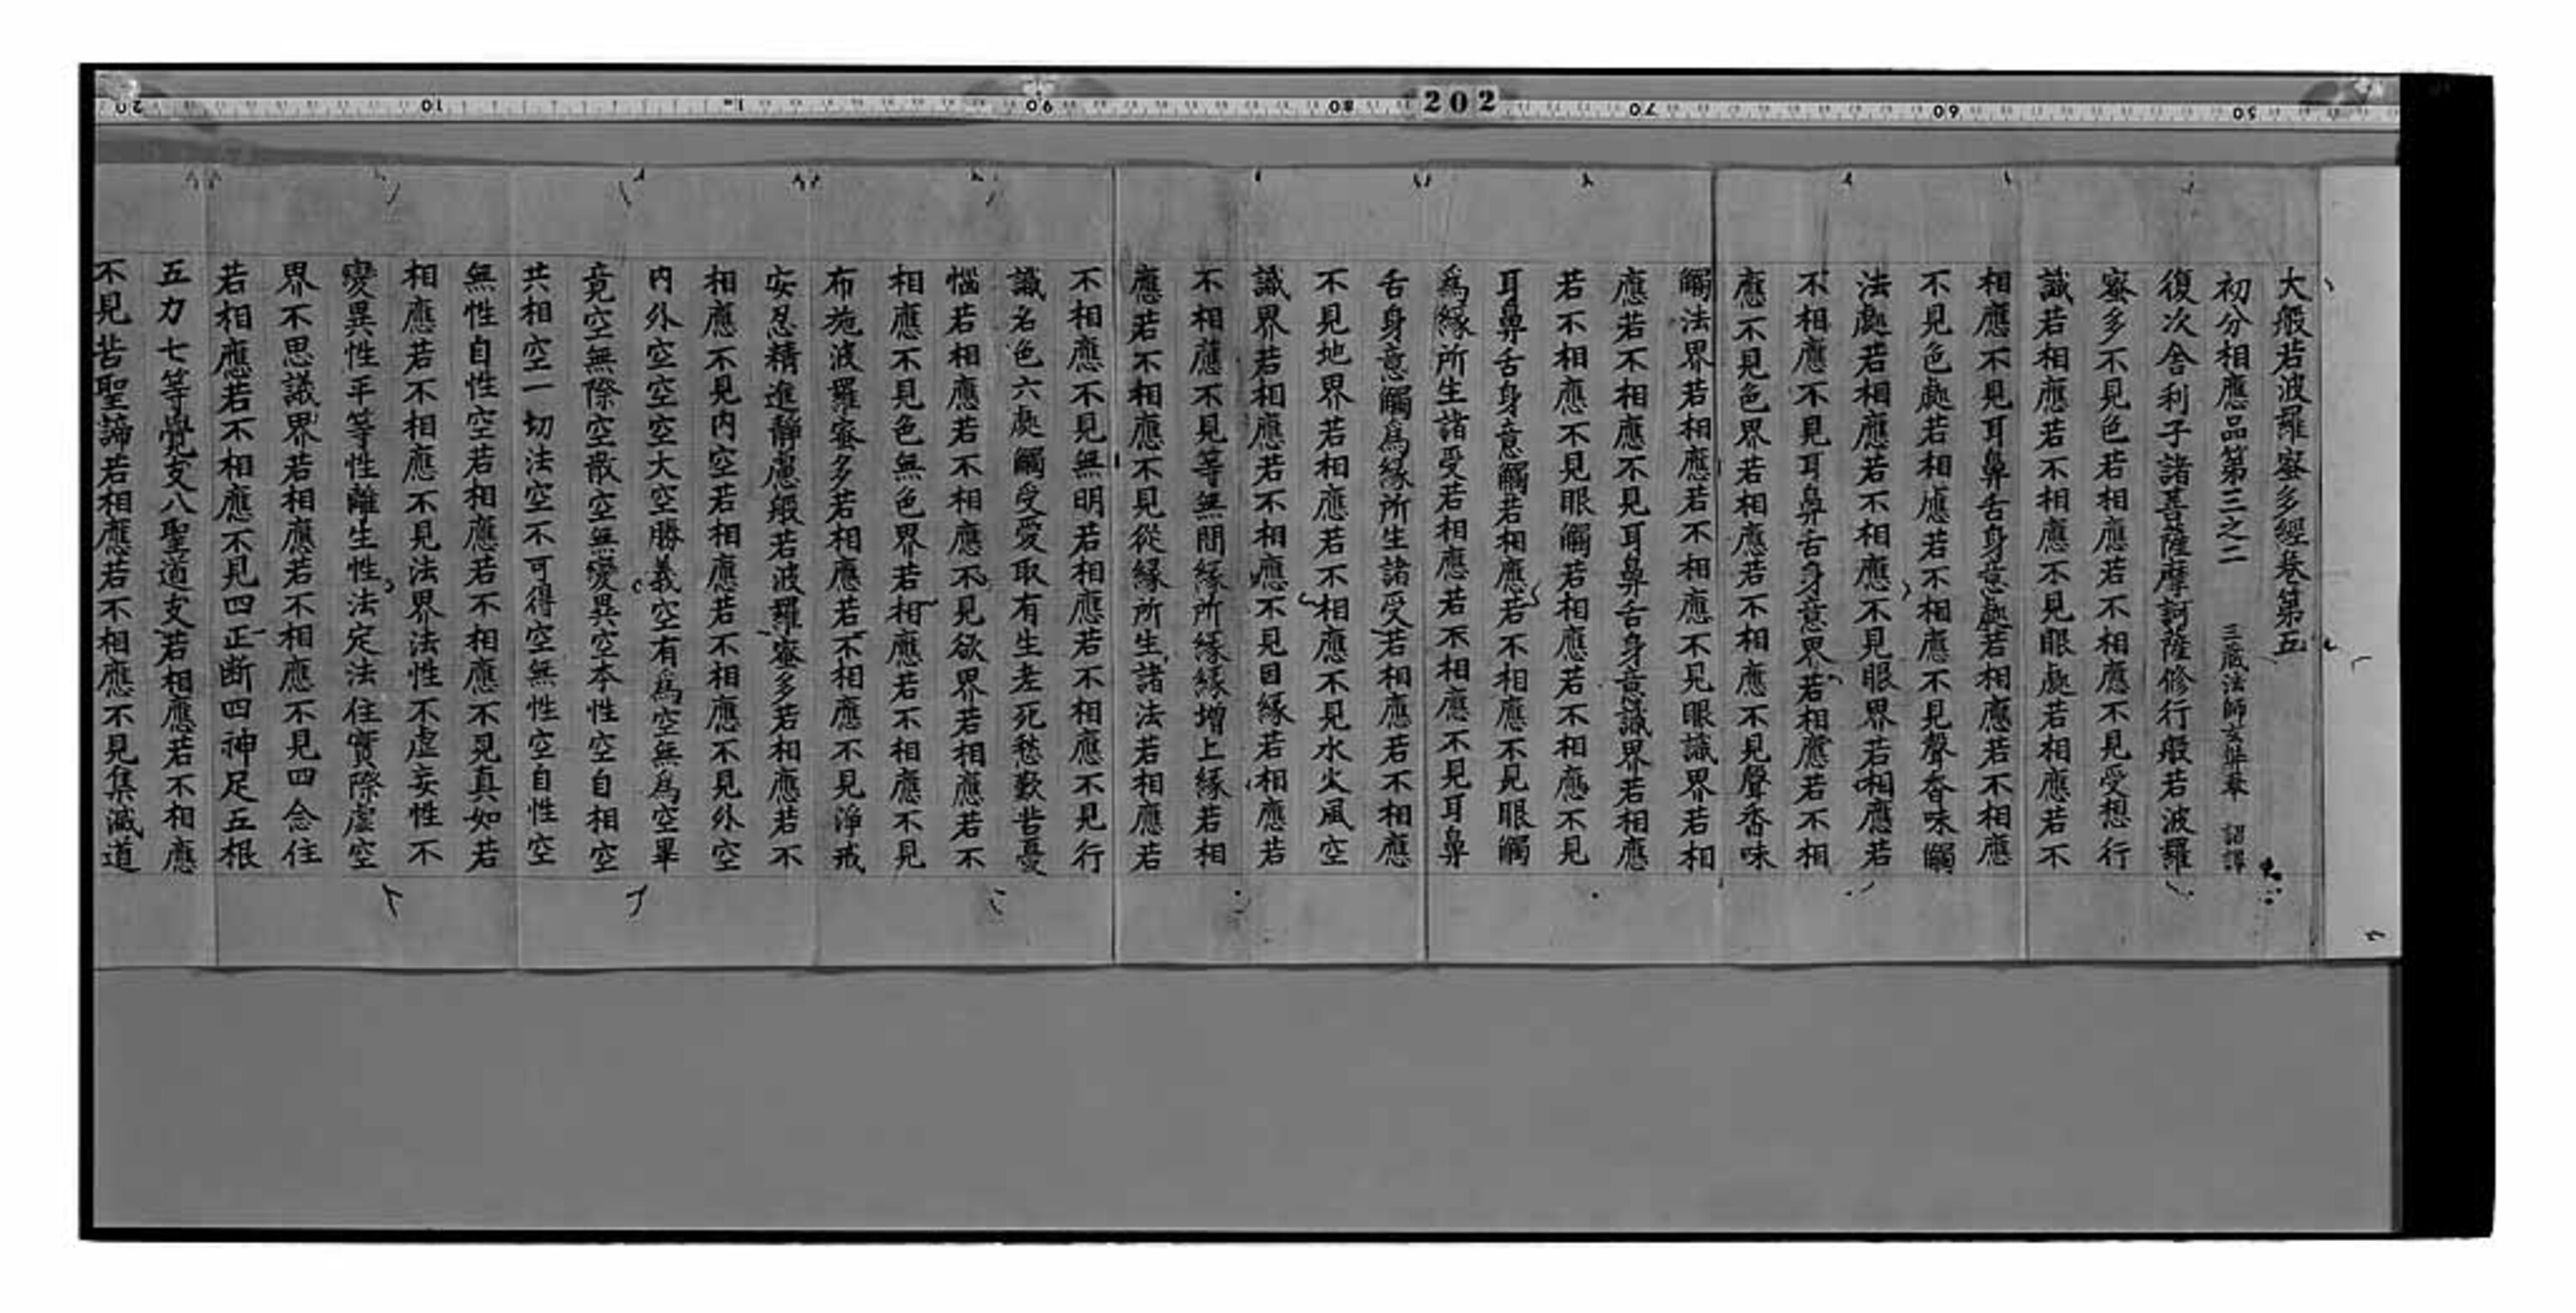 202
大般若波羅蜜多經卷第五
初分相應品第三之二 三蔵法師玄奘奉 詔譯
復次舍利子諸菩薩摩訶薩修行般若波羅
蜜多不見色若相應若不相應不見受想行
識若相應若不相應不見眼處若相應若不
相應不見耳鼻舌身意處若相應若不相應
不見色處若相應若不相應不見聲香味觸
法處若相應若不相應不見眼界若相應若
不相應不見耳鼻舌身意界若相應若不相
應不見色界若相應若不相應不見聲香味
觸法界若相應若不相應不見眼識界若相
應若不相應不見耳鼻舌身意識界若相應
若不相應不見眼觸若相應若不相應不見
耳鼻舌身意觸若相應若不相應不見眼觸
爲緣所生諸受若相應若不相應不見耳鼻
舌身意觸爲緣所生諸受若相應若不相應
不見地界若相應若不相應不見水火風空
識界若相應若不相應不見因緣若相應若
不相應不見等無間緣所緣緣增上緣若相
應若不相應不見從緣所生諸法若相應若
不相應不見無明若相應若不相應不見行
識名色六處觸受愛取有生老死愁歎苦憂
惱若相應若不相應不見欲界若相應若不
相應不見色無色界若相應若不相應不見
布施波羅蜜多若相應若不相應不見淨戒
安忍精進靜慮般若波羅蜜多若相應若不
相應不見内空若相應若不相應不見外空
内外空空空大空勝義空有爲空無爲空畢
竟空無際空散空無變異空本性空自相空
共相空一切法空不可得空無性空自性空
無性自性空若相應若不相應不見真如若
相應若不相應不見法界法性不虛妄性不
變異性平等性離生性法定法住實際虛空
界不思議界若相應若不相應不見四念住
若相應若不相應不見四正断四神足五根
五力七等覺支八聖道支若相應若不相應
不見苦聖諦若相應若不相應不見集滅道